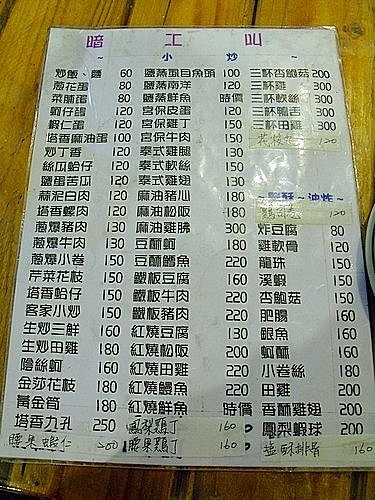 暗工叫
~小炒~
炒飯、麵 60
蔥花蛋 80
菜脯蛋 80
蚵仔蛋 120
蝦仁蛋 120
塔香麻油蛋 100
炒丁香 120
絲瓜蛤仔 120
鹽蛋苦瓜 120
蒜泥白肉 120
塔香螺肉 120
蔥爆豬肉 130
蔥爆牛肉 130
蔥爆小卷 150
芹菜花枝 150
塔香蛤仔 150
客家小炒 150
生炒三鮮 160
生炒田雞 180
陰絲蚵 160
金莎花枝 180
黃金筍 180
塔香九孔 250
腰果蝦仁 200
鹽蒸虱目魚頭 100
鹽蒸南洋 120
鹽蒸鮮魚 時價
宮保皮蛋 120
宮保雞丁 150
宮保牛肉 150
泰式雞腿 130
泰式軟絲 150
泰式雞翅 130
麻油豬沁 180
麻油松阪 180
麻油雞腓 300
豆酥蚵 180
豆酥鱈魚 220
鐵板豆腐 160
鐵板牛肉 220
鐵板豬肉 220
紅燒豆腐 130
紅燒松阪 200
紅燒田雞 220
紅燒鰻魚 220
紅燒鮮魚 時價
鳳梨雞丁 160
腰果雞丁 160
三杯杏鮑菇 200
三杯雞 300
三杯軟絲 300
三杯鴨舌 300
三杯田雞 300
120
~鹽酥、油炸~
120
炸豆腐 80
雞軟骨 120
龍珠 150
溪蝦 150
杏鮑菇 150
肥腸 160
銀魚 160
蚵酥 160
小卷絲 180
田雞 200
香酥雞翅 200
鳳梨蝦球 200
鹽酥排骨 160